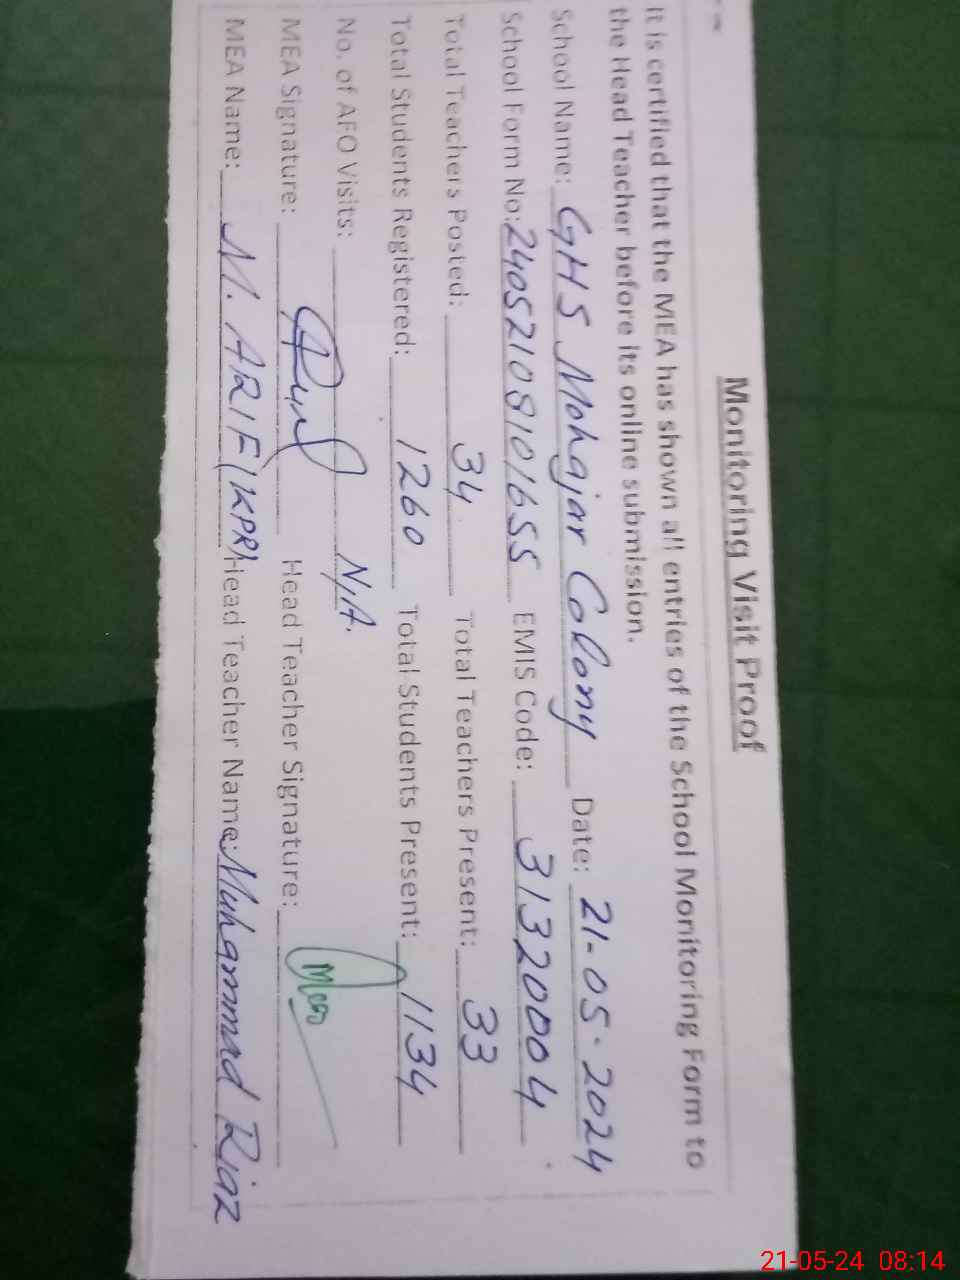 Monitoring Visit Proof
It is certified that the MEA has shown all entries of the School Monitoring Form to
the Head Teacher before its online submission.
School Name: GHS Mohajar Colony Date: 21-05-2024
School Form No: 24052108101655 EMIS Code: 31320004
Total Teachers Posted: 34 Total Teachers Present: 33
Total Students Registered: 1260 Total Students Present: 1134
No. of AEO Visits: N/A.
MEA Signature: Head Teacher Signature:
MEA Name: M. ARIF (KPR) Head Teacher Name: Muhammad Riaz
21-05-24 08:14